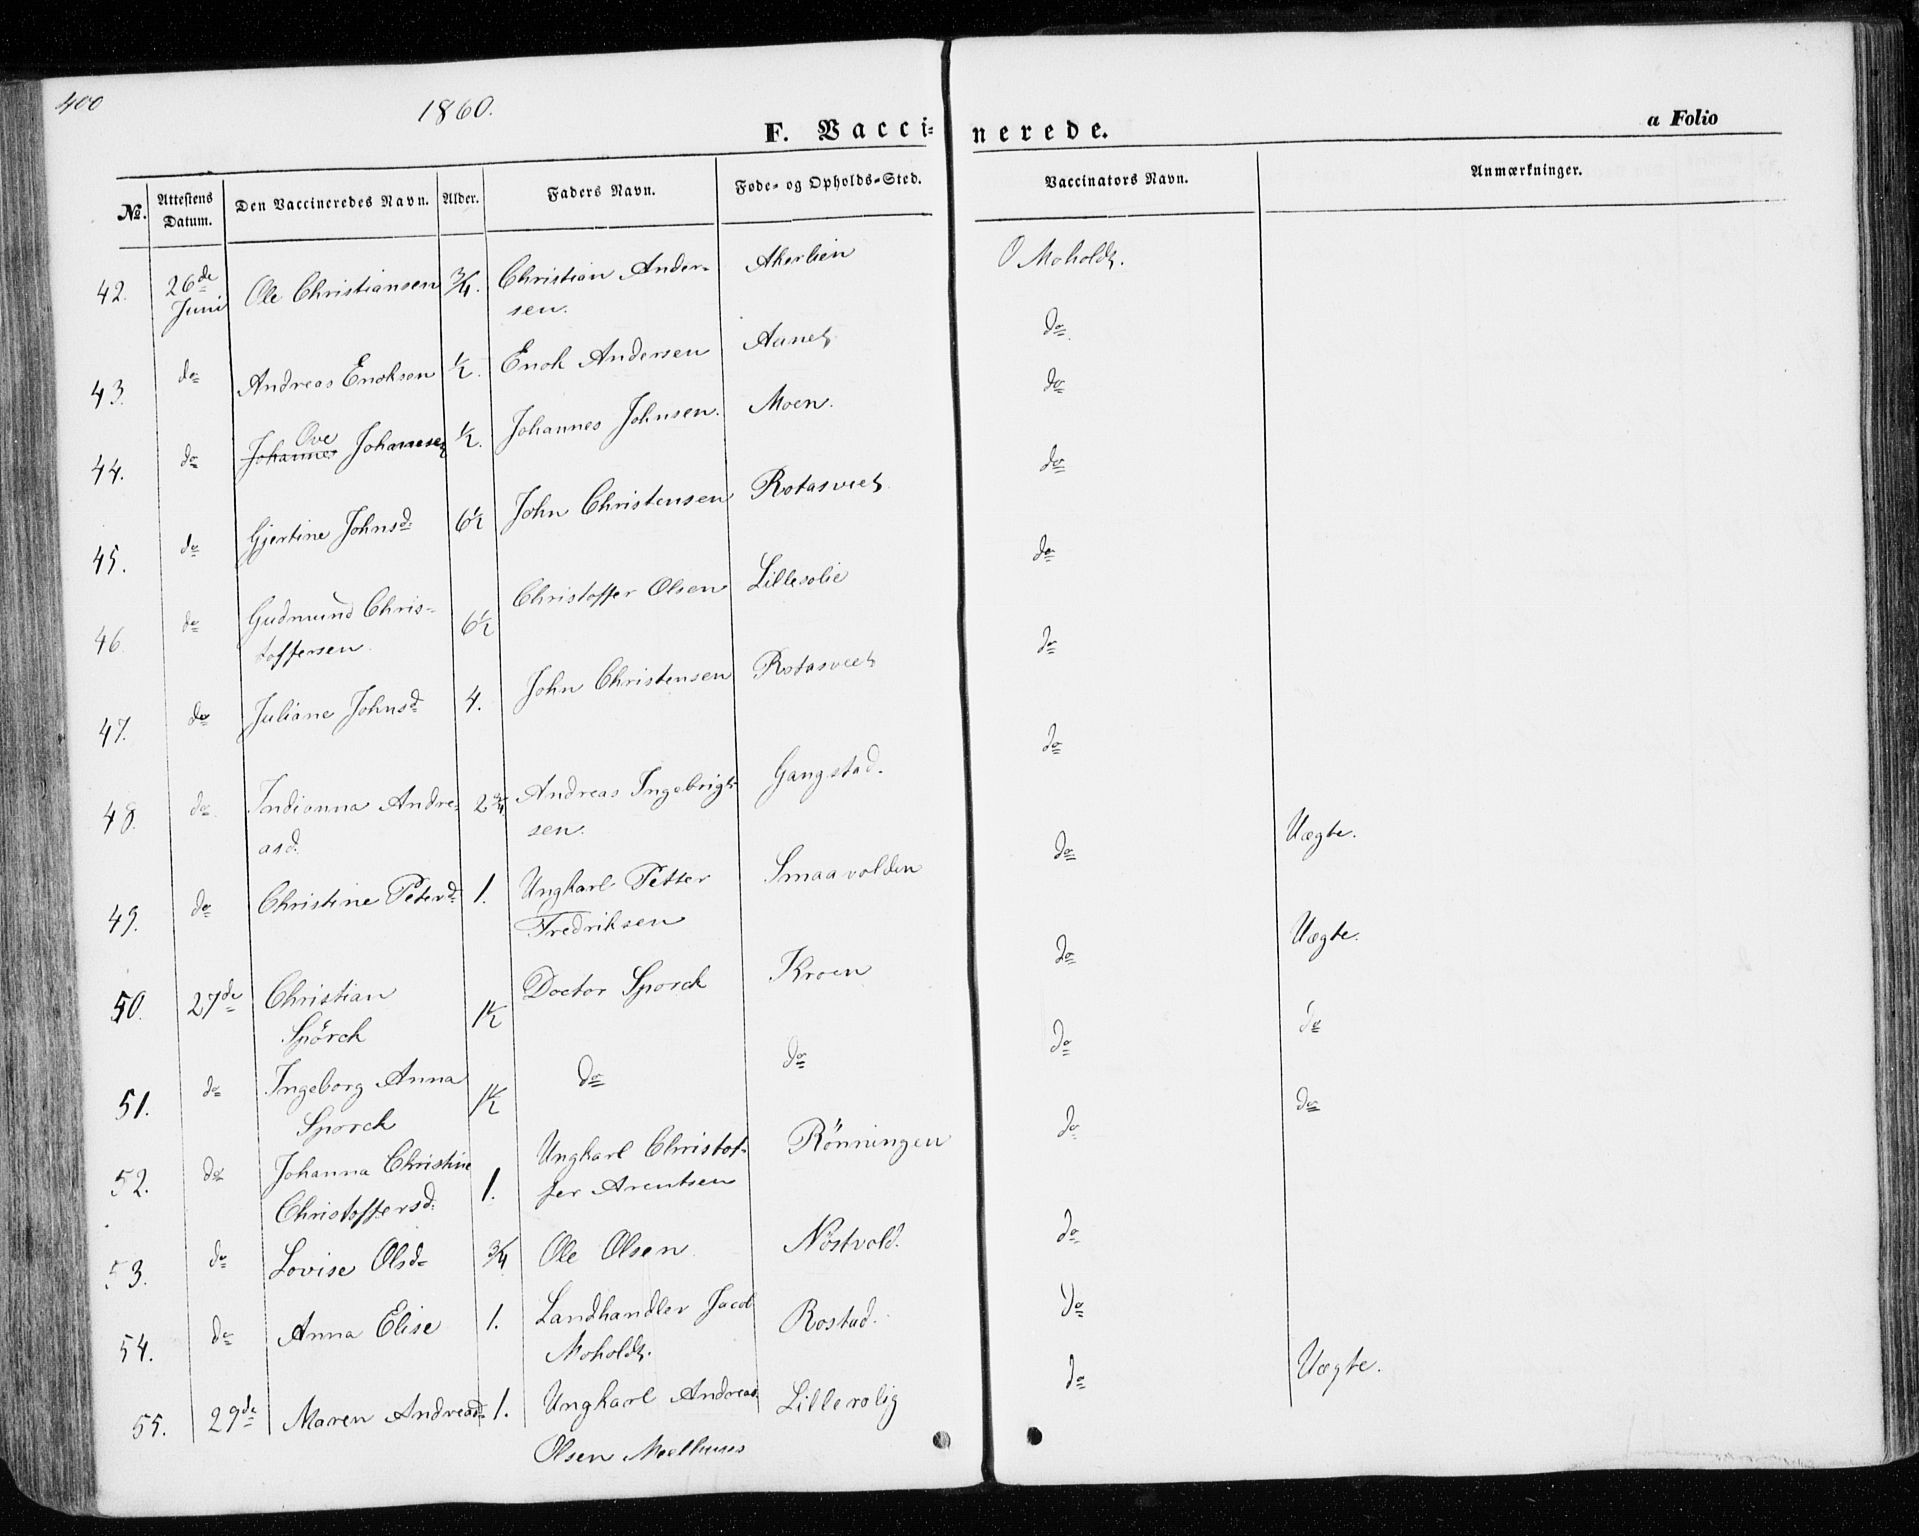 400
1860.
F. Vaccinerede.
a Folio
No. Attestens Datum. Den Vaccineredes Navn. Alder. Faders Navn. Føde- og Opholds-Sted. Vaccinators Navn. Anmærkninger.
42. 26de Juni Ole Christiansen 3/4. Christian Andersen. Akerlien O Moholdt.
43. do Andreas Enoksen 1/2. Enok Andersen Aunet do
44. do Johannes Ove Johannesen 1/2. Johannes Johnsen. Moen. do
45. do Gjertine Johnsd. 6 1/2 John Christensen Rotasveet do
46. do Gudmund Christoffersen. 6 1/2 Christoffer Olsen Lillesolie do
47. do Juliane Johnsd. 4. John Christensen Rotasveet do
48. do Indianna Andreasd. 2 3/4 Andreas Ingebrigtsen. Gangstad. do
49. do Christine Petersd. 1. Ungkarl Petter Fredriksen Smaavolden do Uægte.
50. 27de Christian Spörck 1 1/2 Doctor Sporck Kroen do Uægte.
51. do Ingeborg Anna Sporck 1 1/2 do do do do
52. do Johanna Christine Christoffersd. 1. Ungkarl Christoffer Arentsen Rönningen do do
53. do Lovise Olsd. 3/4 Ole Olsen. Nöstvold. do
54. do Anna Elise 1. Landhandler Jacob Moholdt. Rostad. do
55. 29de Maren Andreasd. 1. Ungkarl Andreas Olsen Meelhuus Lillerolig do Uægte.